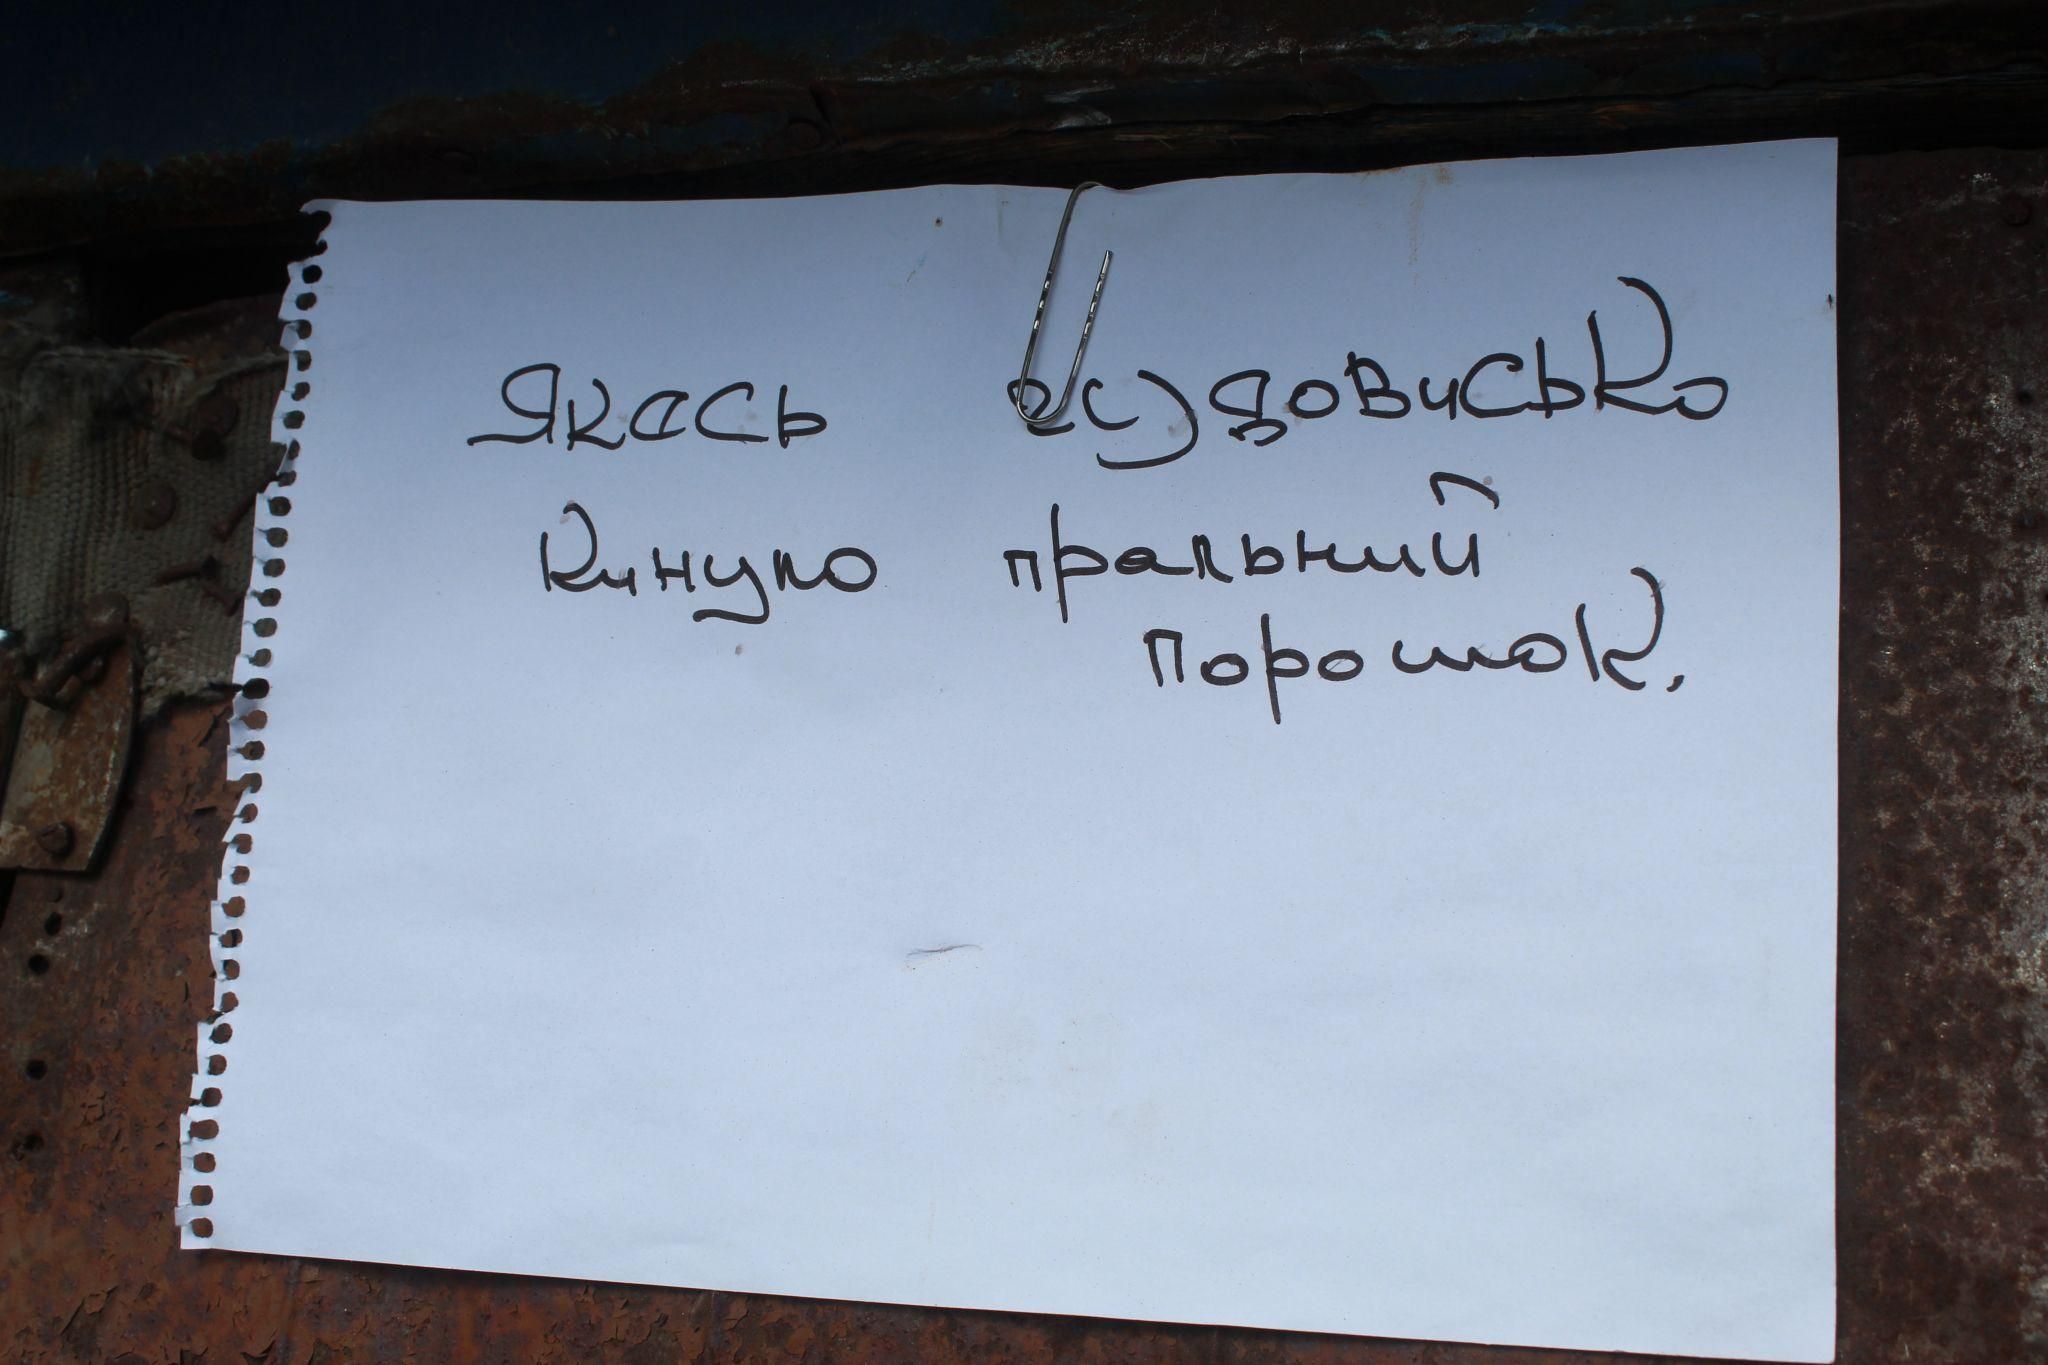 якесь чудовисько
кинуло пральний
порошок.